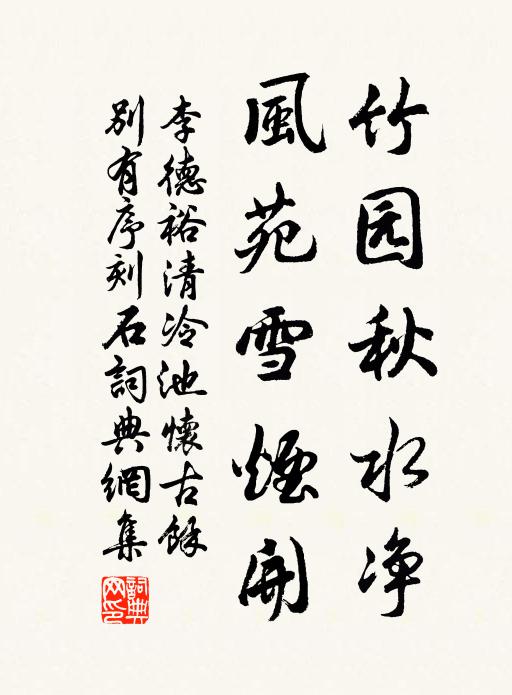 竹园秋水净
風苑雪煙開
李德裕清冷池懷古餘
別有序刻石詞典網集
詞典網印